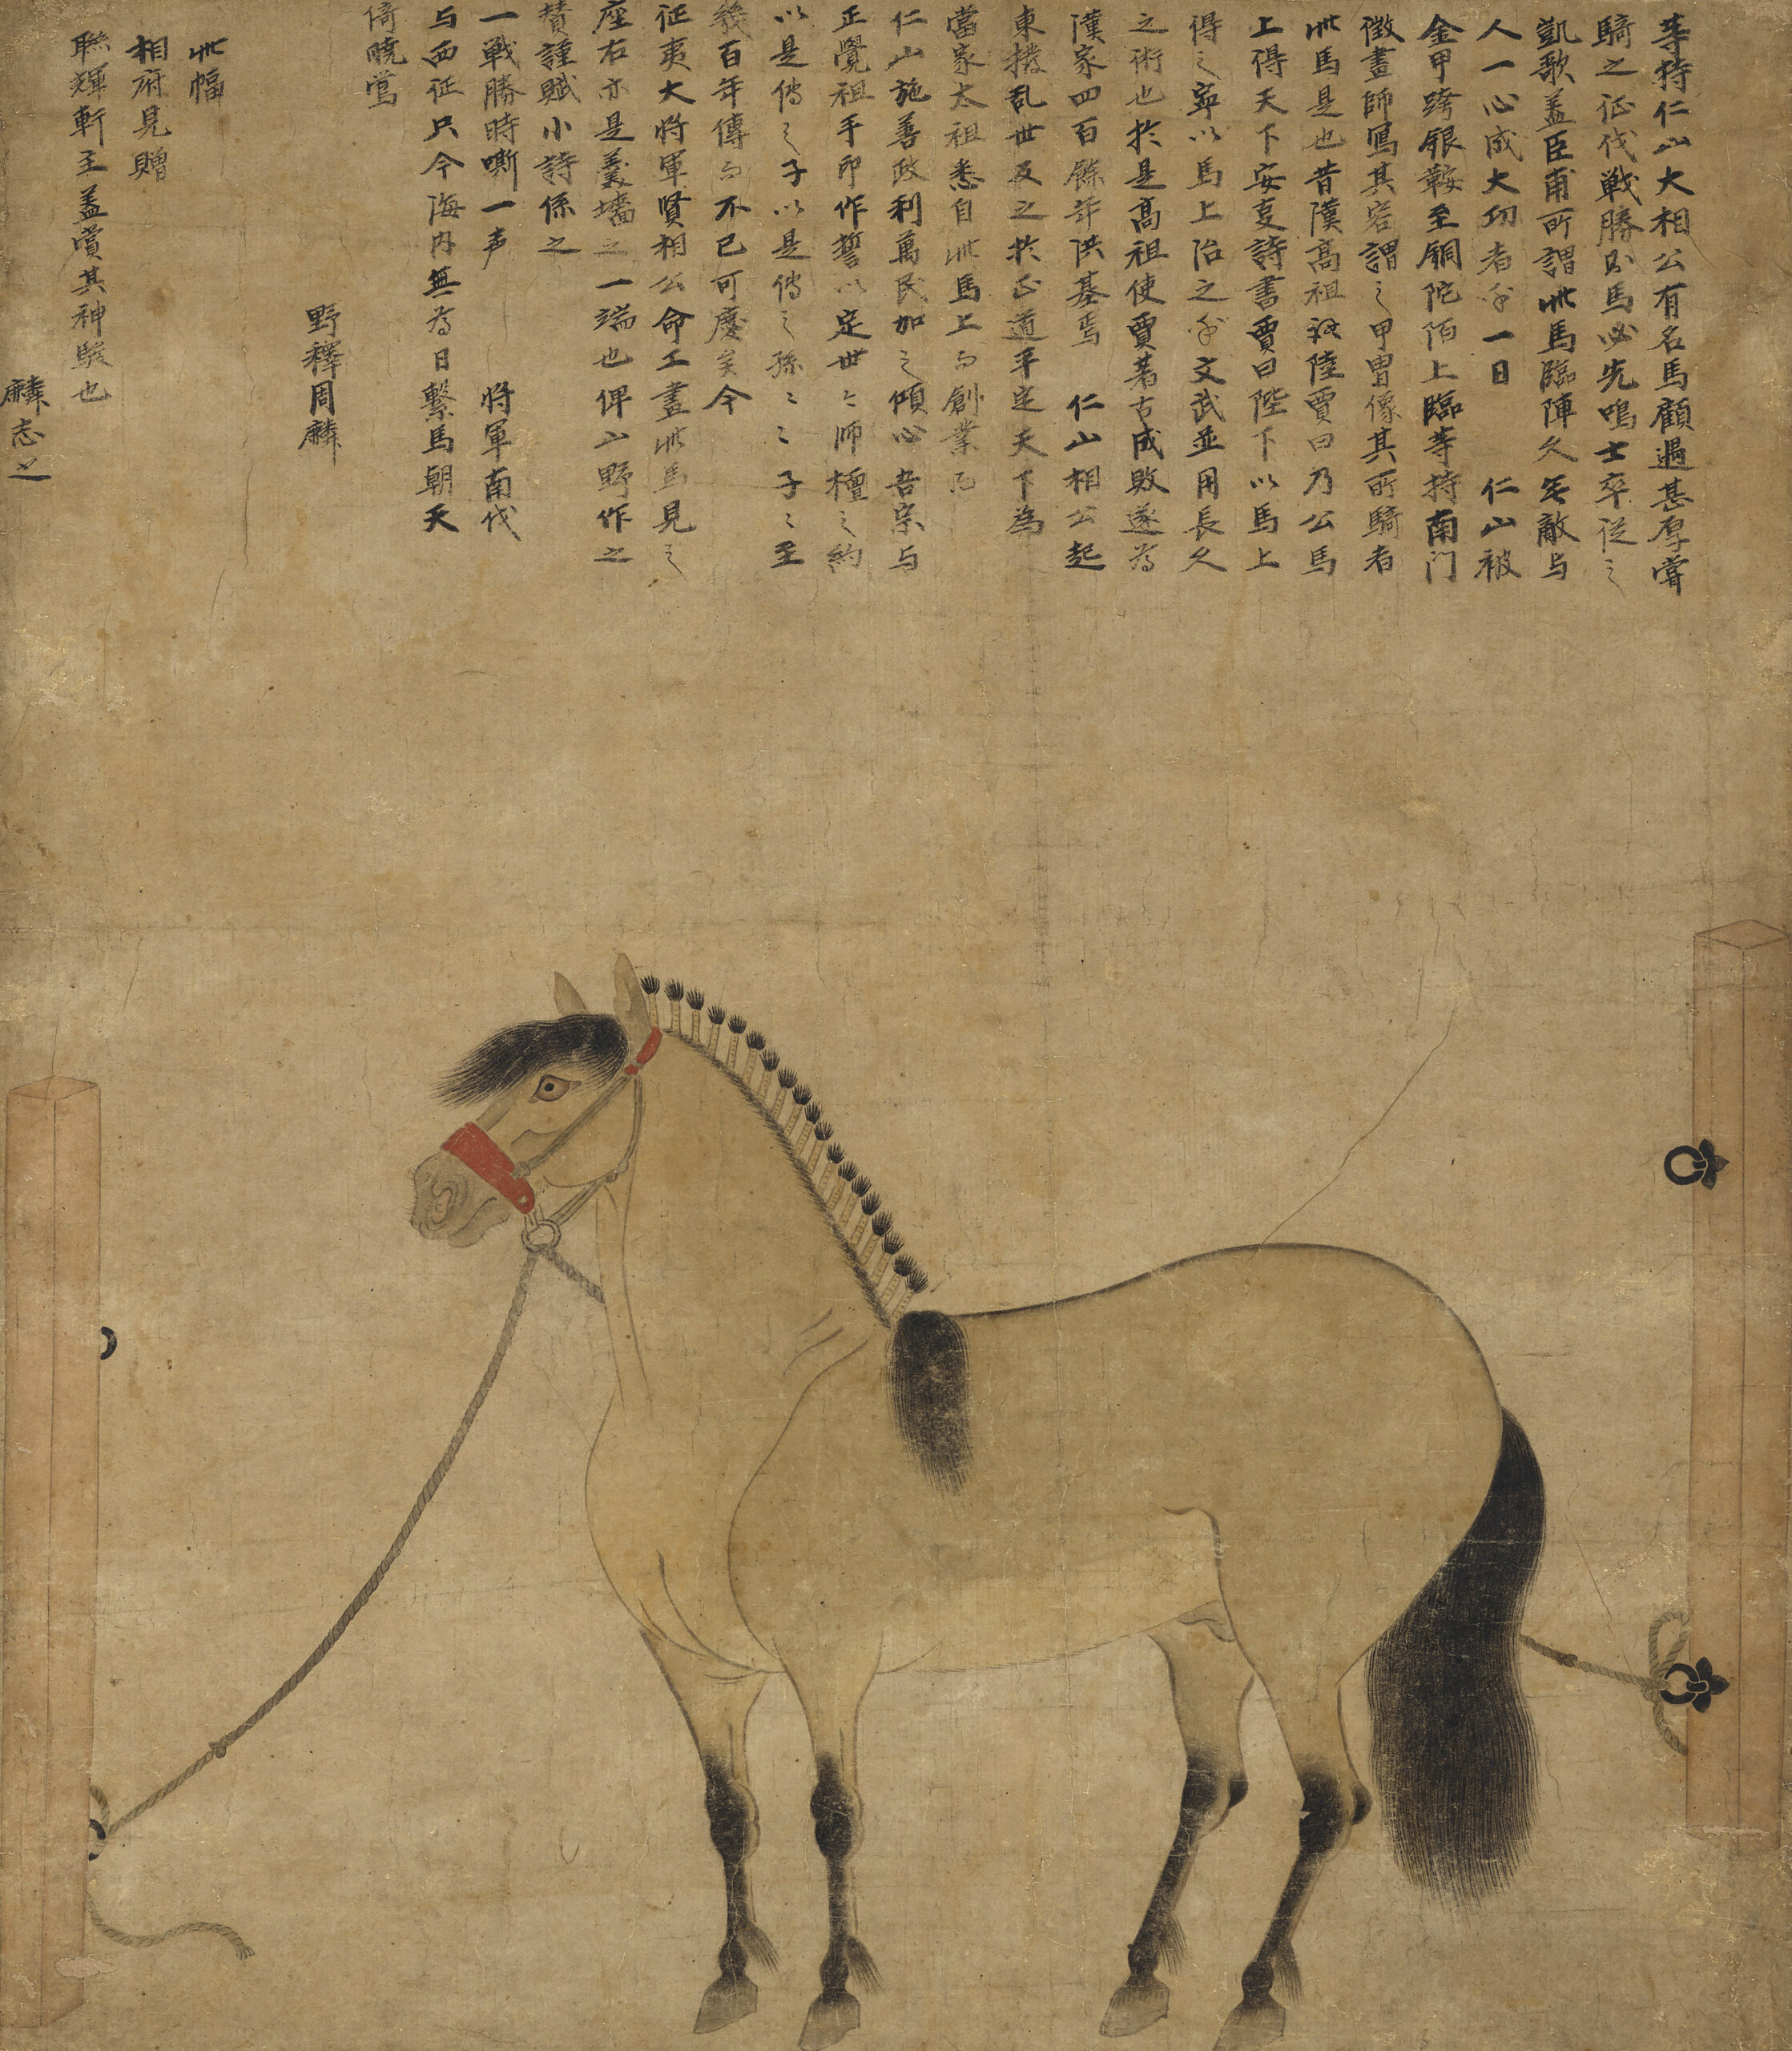 等持仁山大相公有名馬顧遇甚厚嘗
騎之征伐戦勝則馬必先鳴士卒従之
凱歌盖臣甫所謂此馬臨陣久無敵与
人一心成大功者乎一日 仁山被
金甲跨銀鞍至銅陀陌上臨等持南门
徴畫師寫其容謂之甲冑像其所騎者
此馬是也昔漢高祖謂陸賈曰乃公馬
上得天下安叓詩書賈曰陛下以馬上
得之寧以馬上治之乎文武並用長久
之術也於是高祖使賈著古成敗遂為
漢家四百餘年洪基焉 仁山相公起
東撥乱世反之於正道平定天下為
當家太祖悉自此馬上而創業而
仁山施善政利萬民加之傾心吾宗与
正覺祖手印作誓以定世々師檀之約
以是傳之子以是傳之孫々々子々至
幾百年傳而不已可慶矣今
征夷大将軍賢相公命工畫此馬見之
座右亦是羹墻之一端也俾山野作之
賛謹賦小詩係之
一戦勝時嘶一声 将軍南伐
与西征只今海内無為日繋馬朝天
倚暁鶯
野釋周麟
此幅
相府見贈
聯輝軒主盖賞其神駿也
麟志之